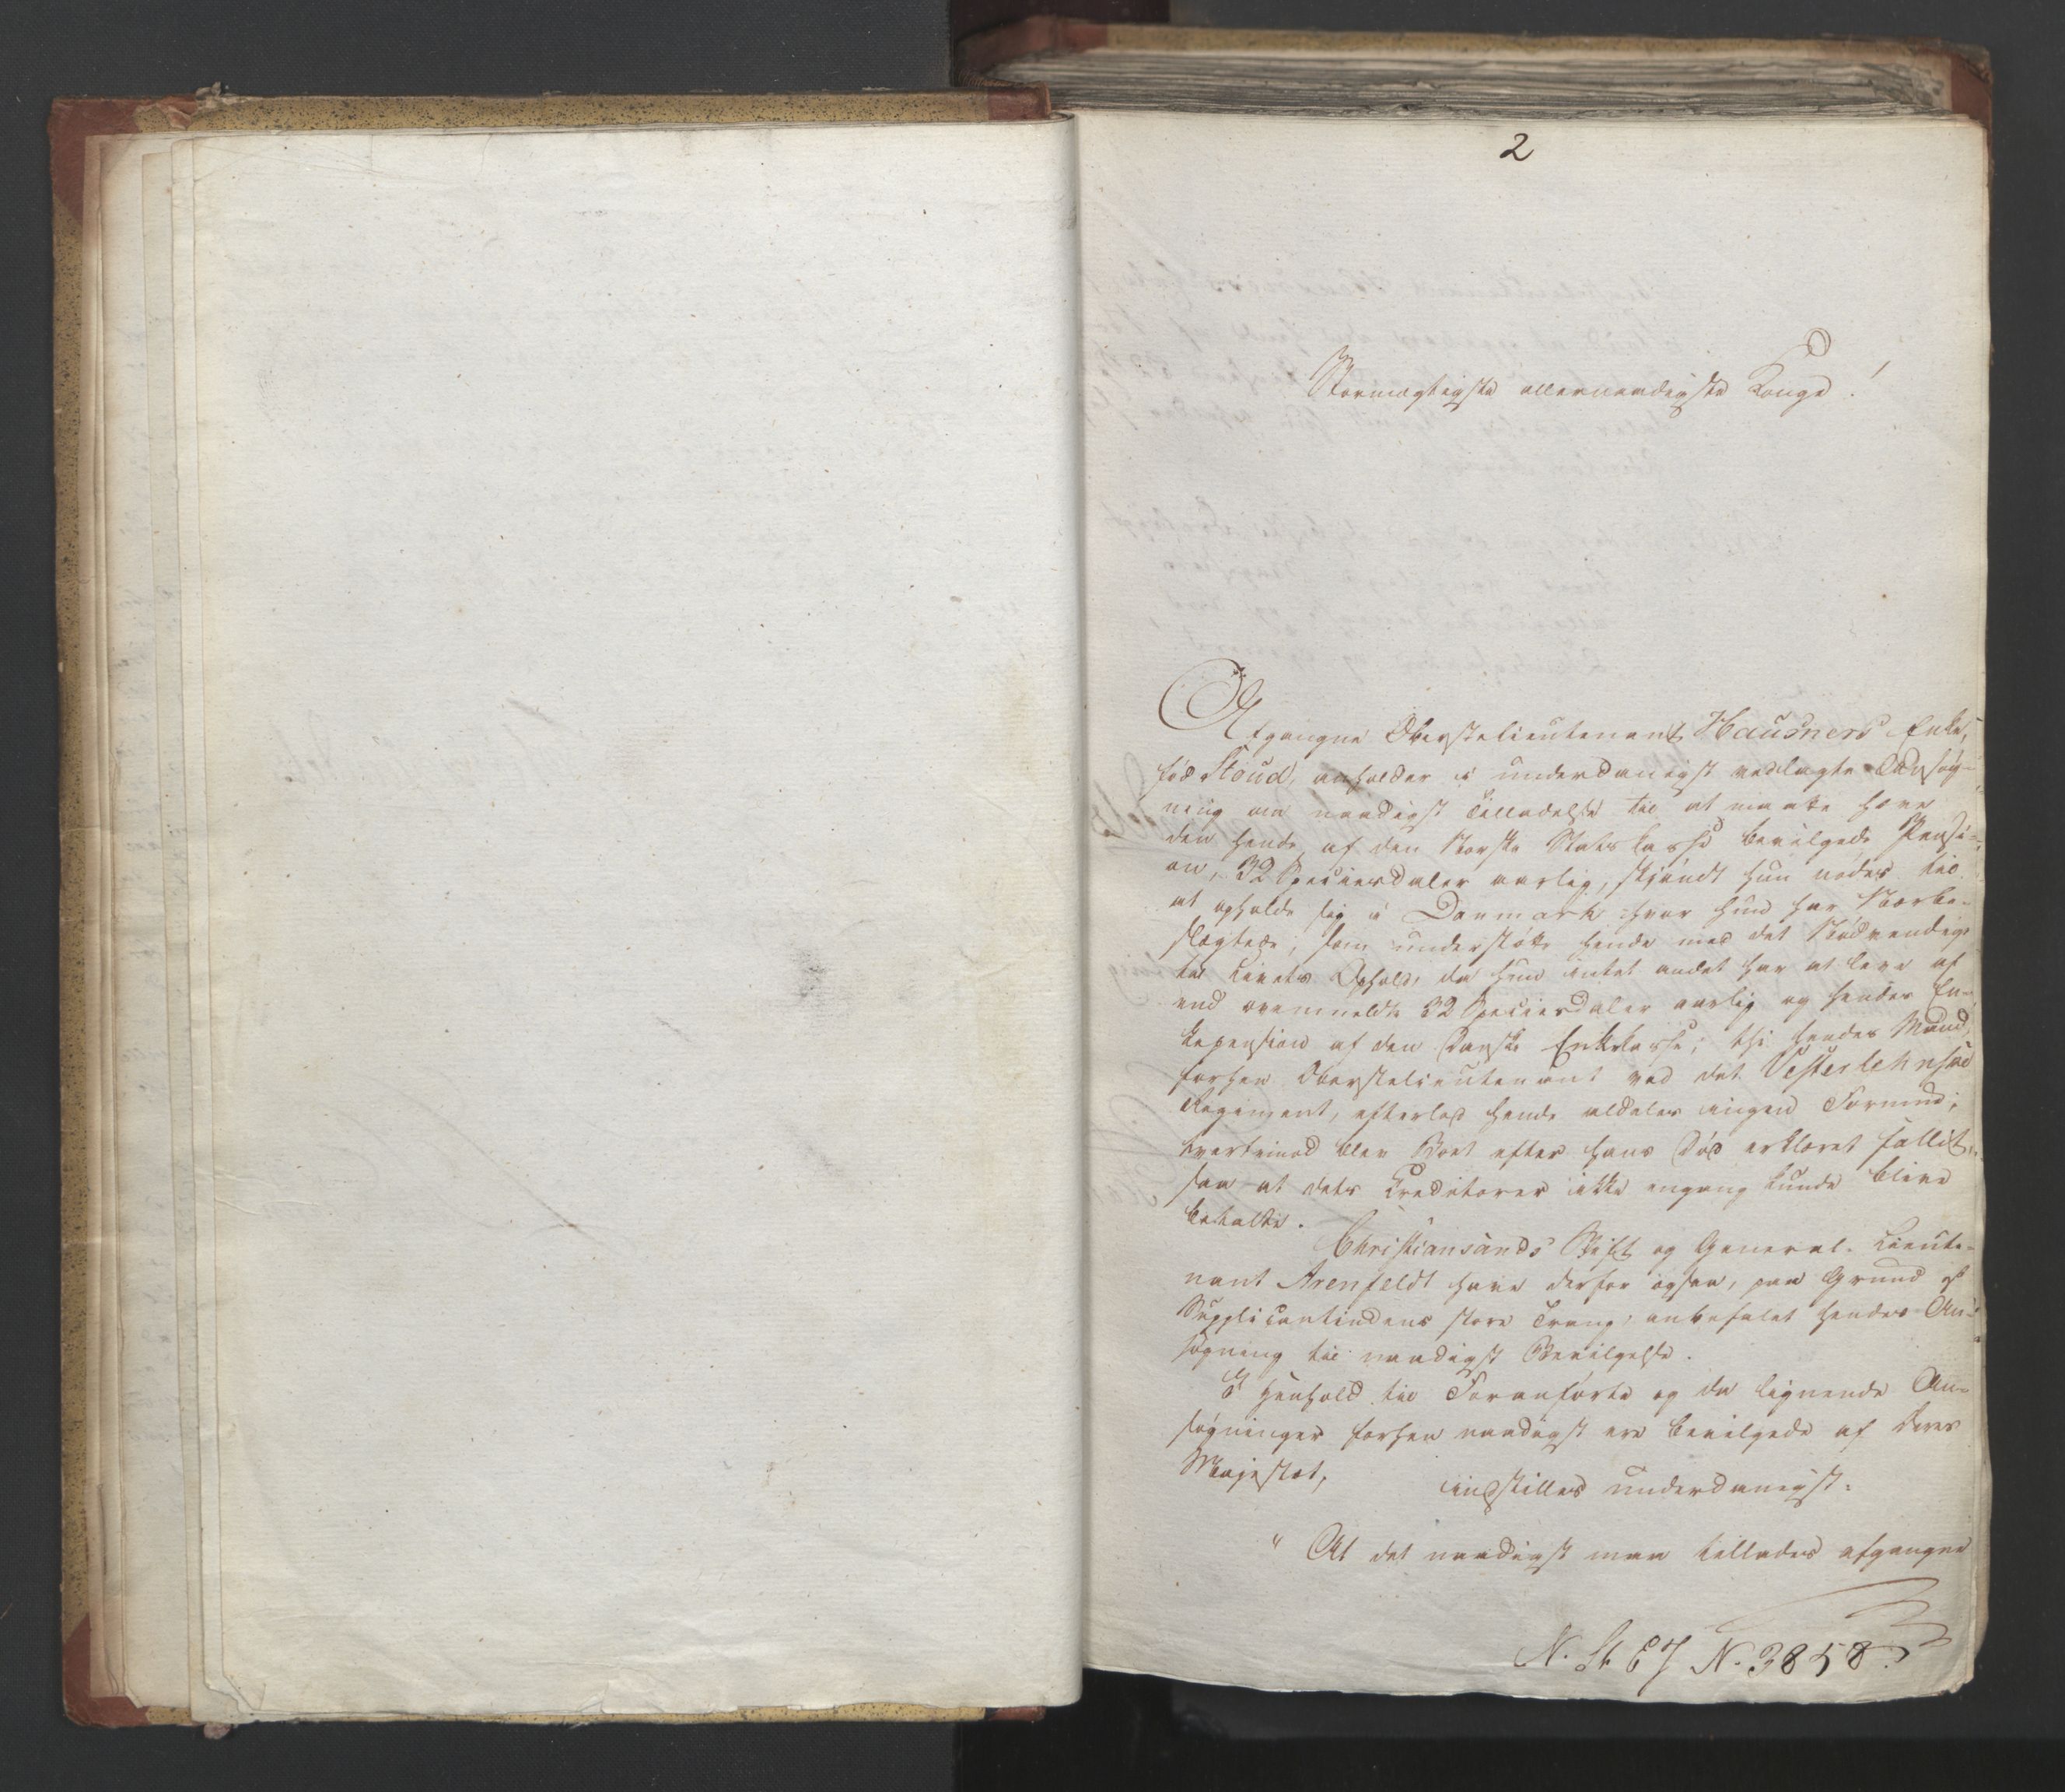 2
Stormægtigste allernaadigste Konge!
Afgangne Oberstelieutenant Hausners Enke,
fød Stoud, anholder i underdanigst vedlagte Ansøg-
ning om naadigst Tilladelse til at maatte hæve
den hende af den Norske Statskasse bevilgede Pensi-
on, 32 Speciesdaler aarlig, skjøndt hun nødes til
at opholde sig i Danmark hvor hun har Nærbe-
slægtede, som understøtte hende med det Nødvendige
til Livets Ophold, da hun intet andet har at leve af
end ovenmeldte 32 Speciesdaler aarlig og hendes En-
kepension af den Danske Enkekasse; thi hendes Mand,
forhen Oberstelieutenant ved det Vesterlehnske
Regiment, efterlod hende aldeles ingen Formue;
tvertimod blev Boet efter hans Død erklæret fallit,
saa at dets Creditorer ikke engang kunde blive
betalte.
Christiansands Stift og General-Lieute-
nant Arenfeldt have derfor ogsaa, paa Grund af
Supplicantindens store Trang, anbefalet hendes An-
søgning til naadigst Bevilgelse.
I Henhold til Foranførte og da lignende An-
søgninger forhen naadigst ere bevilgede af Deres
Majestæt,
indstilles underdanigst:
" At det naadigst maa tillades afgangne
N. St. E 7 N. 3858.